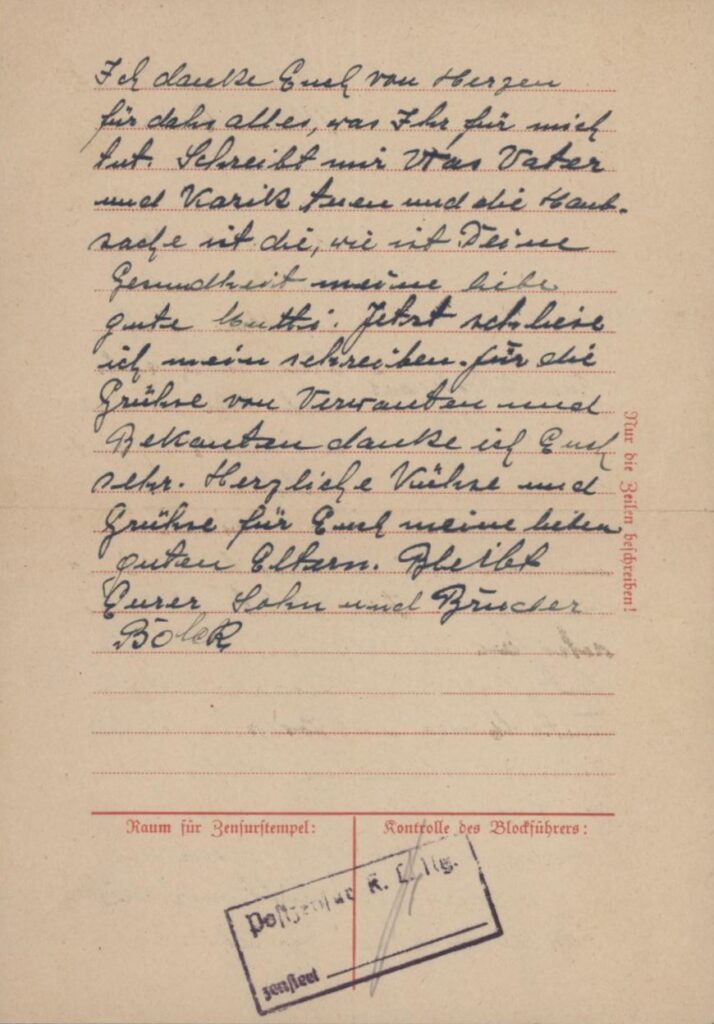 Ich danke Euch von Herzen
für dahs alles, was Ihr für mich
tut. Schreibt mir Was Vater
und Karik tuen und die Haub-
sache ist die, wie ist Deine
Gesundheit meine liebe
gute Mutti. Jetzt schliese
ich mein schreiben. für die
Grühse von Verwanten und
Bekanten danke ich Euch
sehr. Herzliche Kühse und
Grühse für Euch meine lieben
guten Eltern. Bleibt
Eurer Sohn und Bruder
Bolek
Nur die Zeilen beschreiben!
Raum für Zensurstempel:
Kontrolle des Blockführers:
Postzensur K. L. Ng.
zensiert